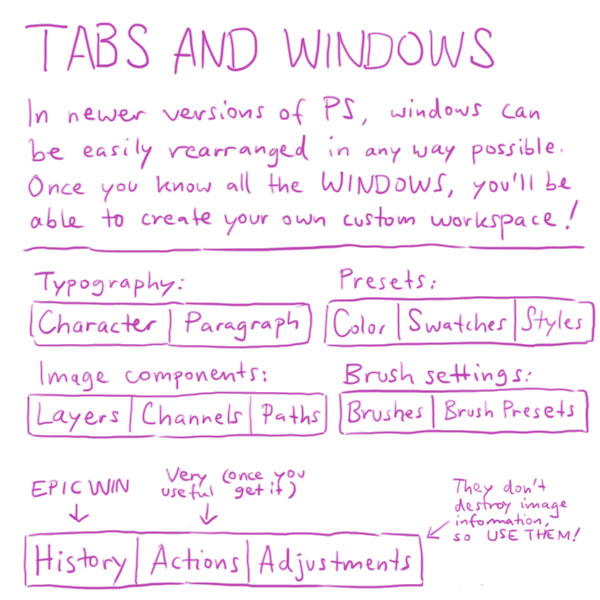 TABS AND WINDOWS
In newer versions of PS, windows can
be easily rearranged in any way possible.
Once you know all the WINDOWS, you'll be
able to create your own custom workspace!
Typography:
Character | Paragraph
Presets:
Color | Swatches | Styles
Image components:
Layers | Channels | Paths
Brush settings:
Brushes | Brush Presets
EPIC WIN
Very (once you
useful get it)
They don't
destroy image
information,
so USE THEM!
History | Actions | Adjustments